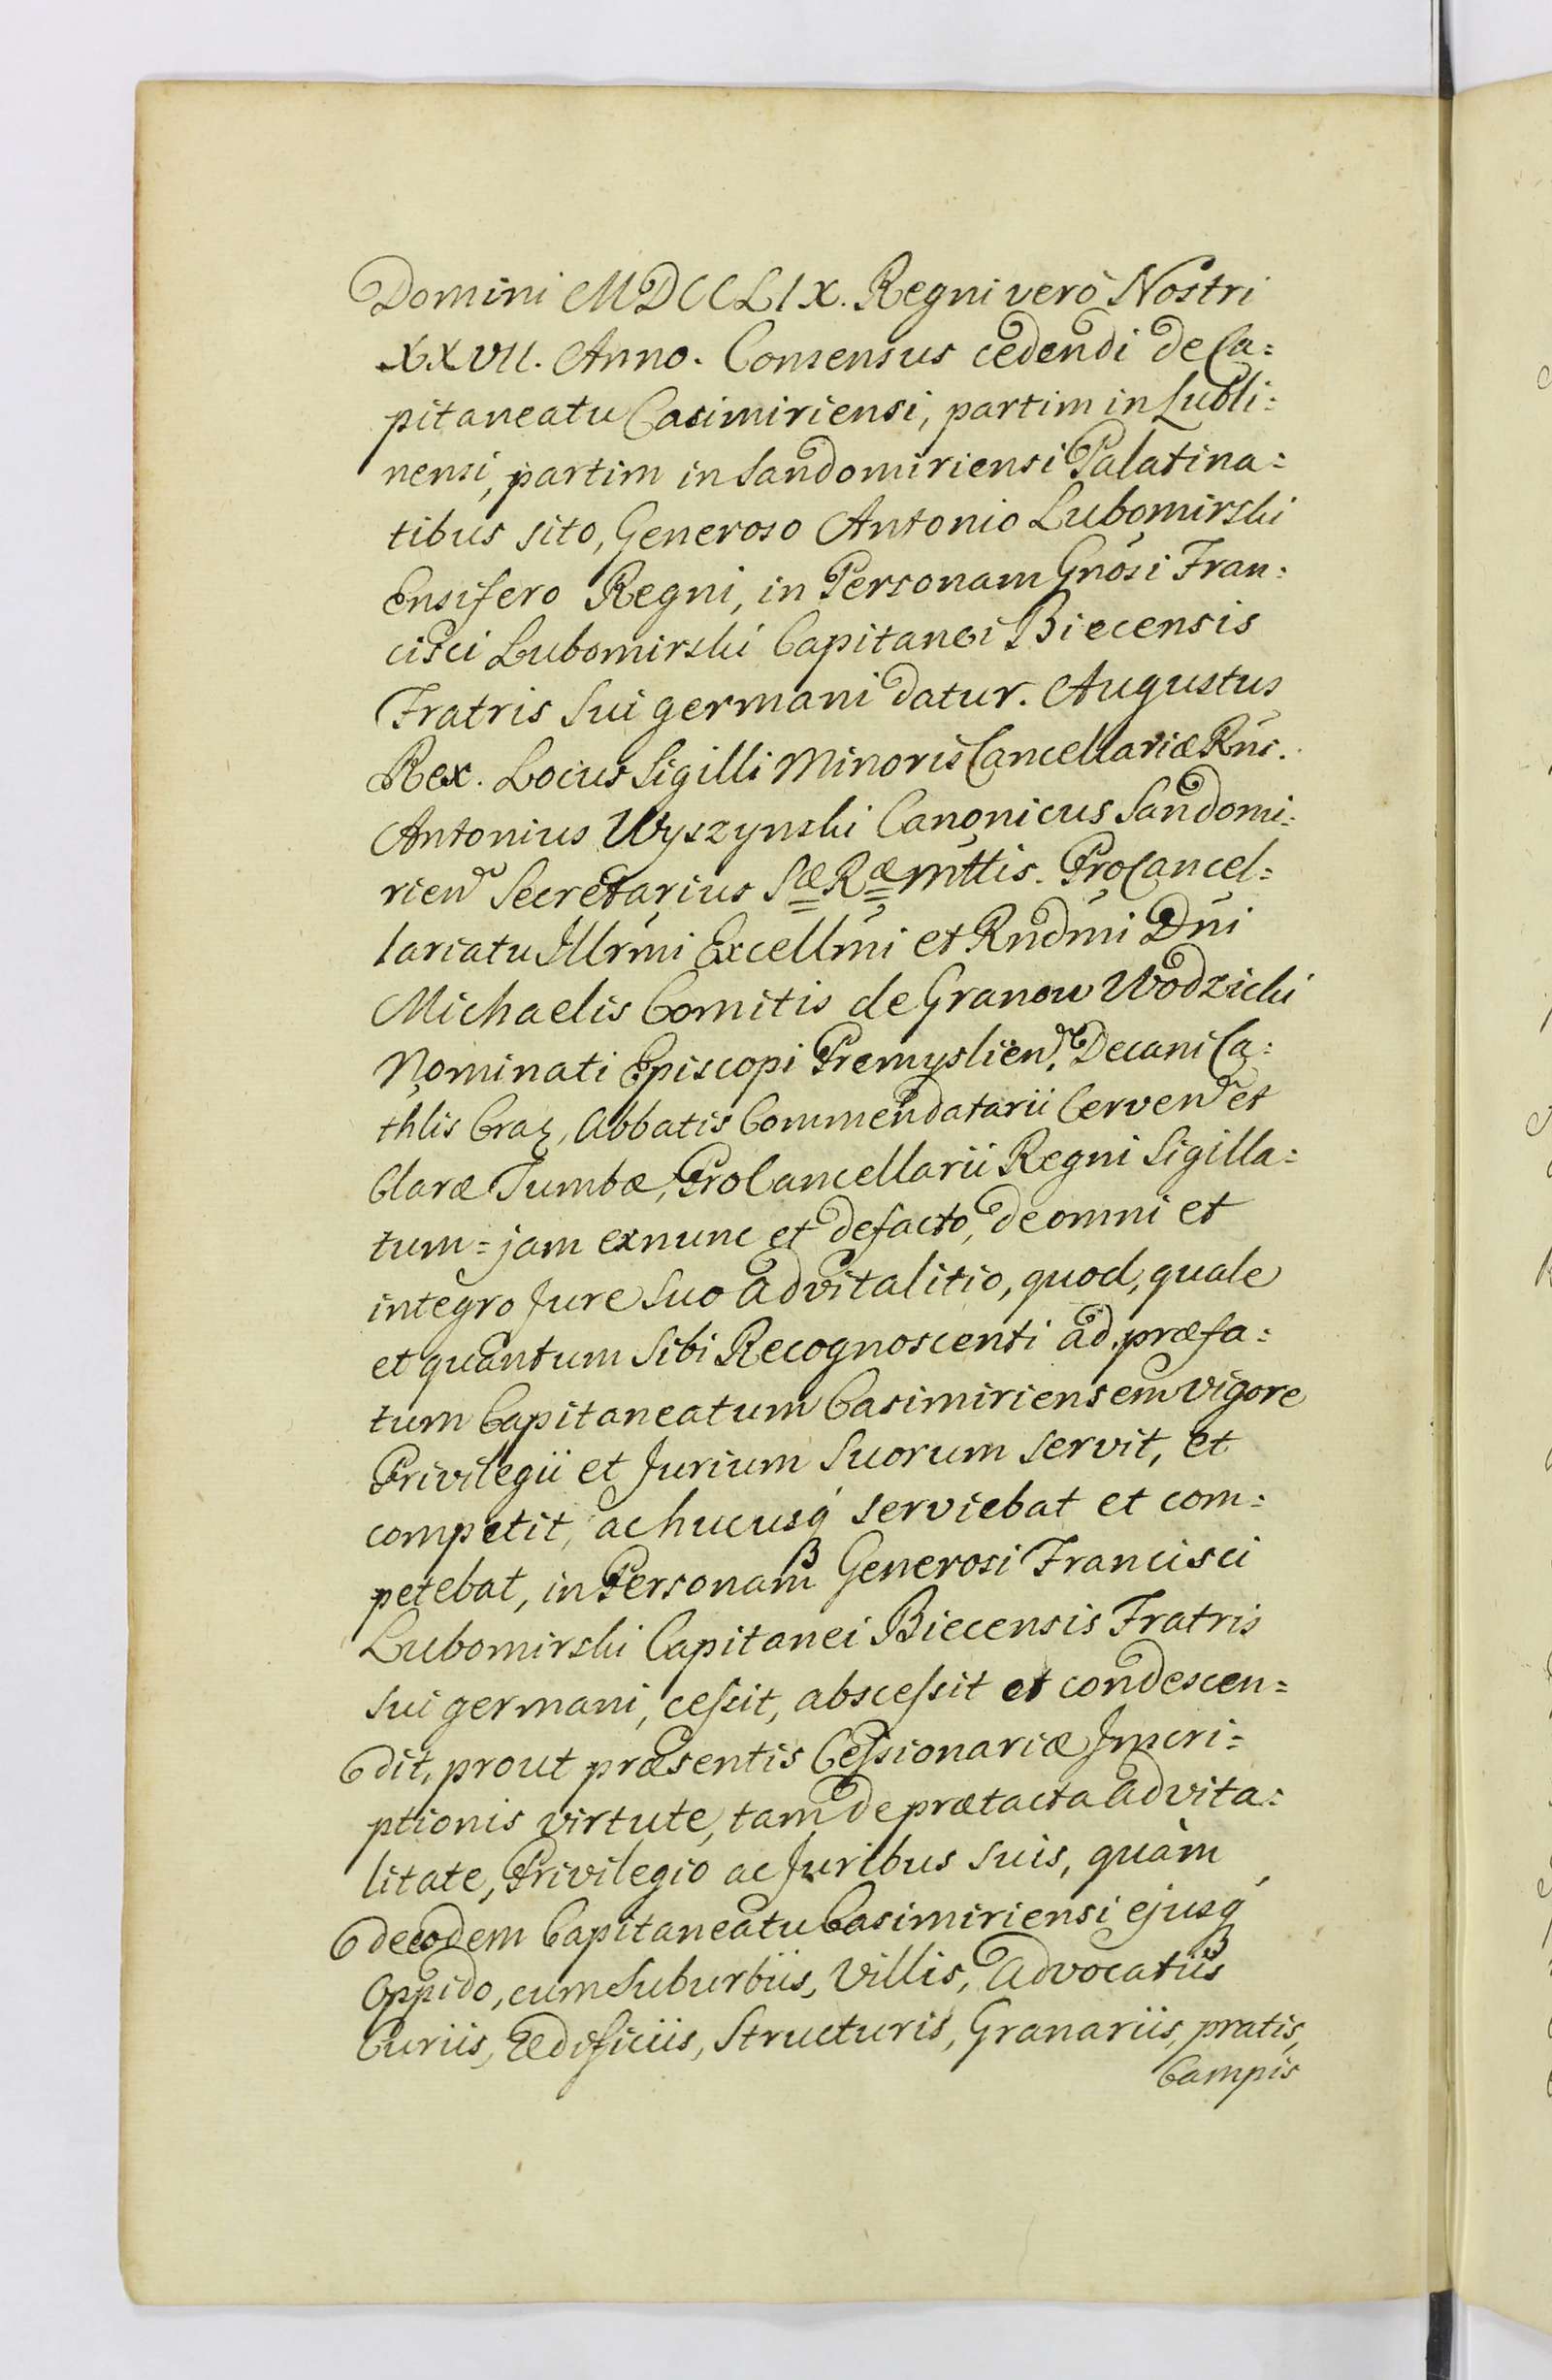 Domini MDCCLIX. Regni verò Nostri
XXVII. Anno. Consensus cedendi de Ca=
pitaneatu Casimiriensi, partim in Lubli=
nensi, partim in Sandomiriensi Palatina=
tibus sito, Generoso Antonio Lubomirski
Ensifero Regni, in Personam Gnosi Fran=
cisci Lubomirski Capitanei Biecensis
Fratris Sui germani datur. Augustus
Rex. Locus Sigilli Minoris Cancellariæ Rni.
Antonius Wyszynski Canonicus Sandomi=
rien Secretarius Sæ Ræ Mttis. ProCancel=
lariatu Illrmi Excellmi et Rndmi Dni
Michaelis Comitis de Granow Wodzicki
Nominati Episcopi Premyslien. Decani Ca=
thlis Crac, Abbatis Commendatarii Cerven et
Claræ Tumbæ, ProCancellarii Regni Sigilla=
tum = jam exnunc et defacto, de omni et
integro Jure Suo advitalitio, quod, quale
et quantum Sibi Recognoscenti ad præfa=
tum Capitaneatum Casimiriensem vigore
Privilegii et Jurium Suorum servit, et
competit, ac hucusq́ serviebat et com=
petebat, in Personam Generosi Francisci
Lubomirski Capitanei Biecensis Fratris
Sui germani, cessit, abscessit et condescen=
dit, prout præsentis Cessionariæ Inscri=
ptionis virtute, tam de prætacta advita=
litate, Privilegio ac Juribus Suis, quàm
de eodem Capitaneatu Casimiriensi ejusq́
Oppido, cum Suburbiis, Villis, Advocatiis
Curiis, Ædificiis, Structuris, Granariis, pratis,
Campis